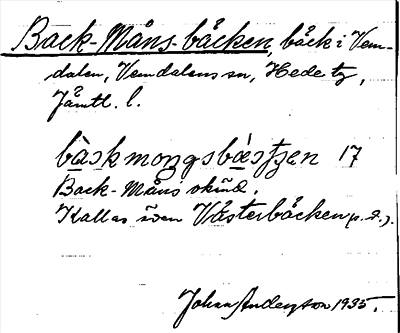 Back-Måns-bäcken, bäck i Vem-
dalen, Vemdalens sn, Hede tg,
Jämtl. l.
bàskmoŋsbæ̀stʃen 17
Back-Måns skind.
Kallas även Västerbäcken
Johan Anderson 1935.